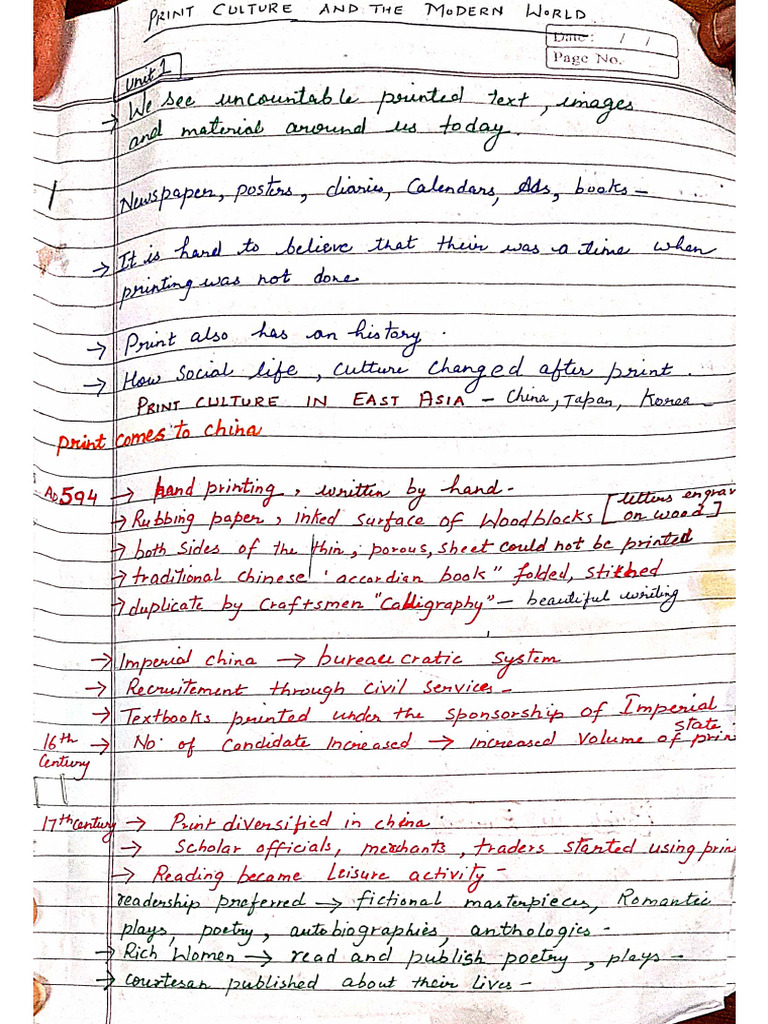 PRINT CULTURE AND THE MODERN WORLD
Date: / /
Page No.
Unit 1
→ We see uncountable printed text, images
and material around us today.
Newspaper, posters, diaries, Calendars, Ads, books –
→ It is hard to believe that their was a time when
printing was not done
→ Print also has an history.
→ How social life, culture changed after print.
PRINT CULTURE IN EAST ASIA – China, Japan, Korea –
print comes to china
AD 594 → hand printing, written by hand –
→ Rubbing paper, inked surface of Woodblocks [letters engrav
on wood]
→ both sides of the thin, porous, sheet could not be printed
→ traditional chinese 'accordian book" folded, stitched
→ duplicate by craftsmen "Calligraphy" – beautiful writing
→ Imperial china → bureaucratic system
→ Recruitement through civil services –
→ Textbooks printed under the sponsorship of Imperial
state
16th → No. of candidate increased → increased volume of prin
Century
17th century → Print diversified in china.
→ Scholar officials, merchants, traders started using prin
→ Reading became leisure activity –
readership preferred → fictional masterpieces, Romantic
plays, poetry, autobiographies, anthologies –
→ Rich Women → read and publish poetry, plays –
→ courtesan published about their lives –